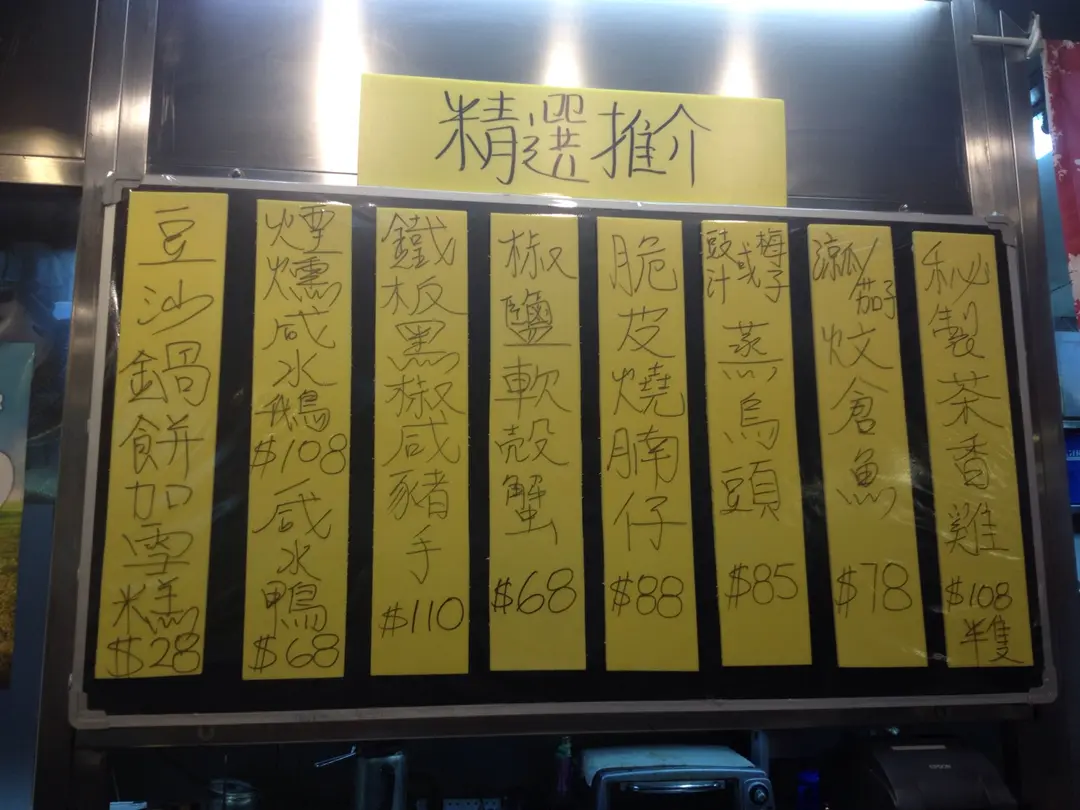 精選推介
秘製茶香雞
$108
半隻
涼瓜/茄子炆倉魚
$78
豉汁或梅子蒸烏頭
$85
脆皮燒腩仔
$88
椒鹽軟殼蟹
$68
鐵板黑椒咸豬手
$110
煙燻咸水鵝
$108
咸水鴨
$68
豆沙鍋餅加雪糕
$28
EPSON